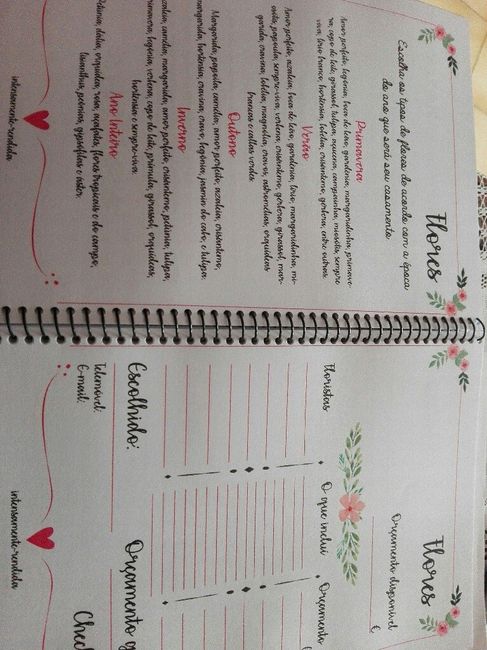 Flores
Escolha os tipos de flores de acordo com a época
do ano que será seu casamento.
Primavera
Amor perfeito, begônia, boca de leão, gardênia, margaridinha, primave-
ra, copo de leite, girassol, tulipa, açucena, campainha, miosótis, sempre
viva, lírio branco, hortênsia, lobélia, crisântemo, gerbera, entre outras.
Verão
Amor perfeito, azaleia, boca de leão, gardênia, lírio, margaridinha, mi-
papoula, sempre-viva, verbena, crisântemo, gerbera, girassol, mar-
garida, cravina, lobélia, magnólia, cravos, astromélias, orquídeas
brancas e callas verdes
Outono
Margarida, papoula, camélia, amor perfeito, azaleia, crisântemo,
margarida, hortênsia, cravina, cravo, begônia, jasmim do cabo, e tulipa.
Inverno
azaleia, camélia, margarida, amor perfeito, crisântemo, petúnia, tulipa,
primavera, begônia, verbena, copo de leite, prímula, girassol, orquídeas,
hortênsia e sempre-viva.
Ano Inteiro
Petúnia, dália, orquídea, rosa, flores tropicais e do campo,
lisianthus, peônias, gypsofilas e aster.
intensamente-rendida
Flores
Orçamento disponível
€
Floristas O que inclui Orçamento
Escolhido: Orçamento
Telemóvel:
E-mail:
Chec
intensamente-rendida